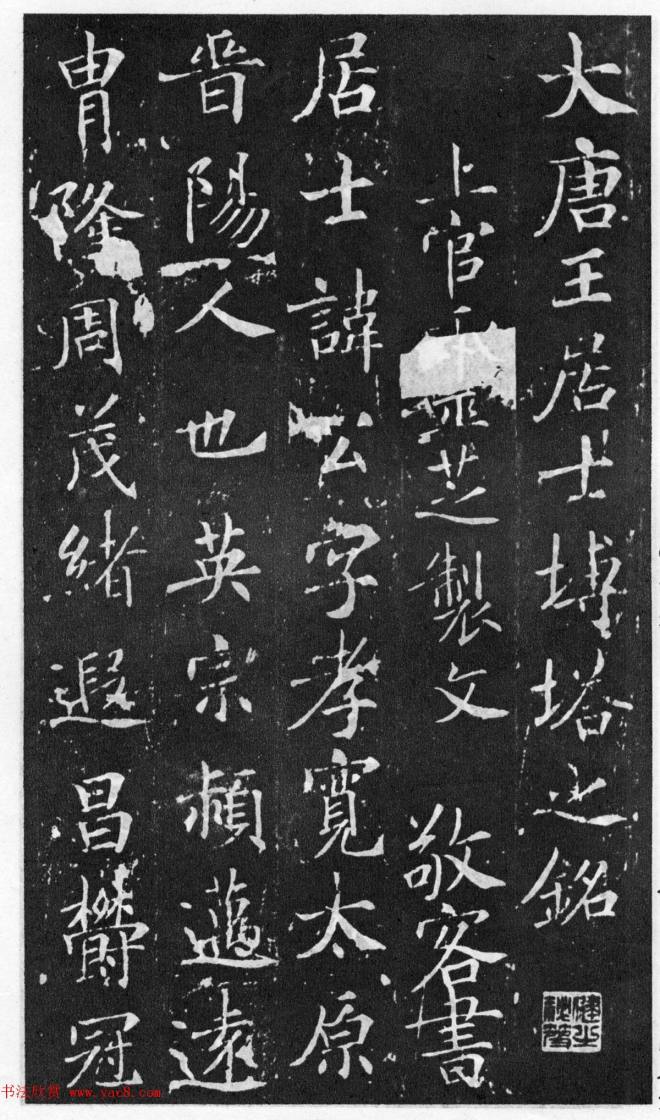 大唐王居士塼塔之銘
上官靈芝製文 敬客書
居士諱公字孝寬太原
晉陽人也英宗穎邁遠
冑隆周茂緒遐昌欝冠
书法欣赏 www.yac8.com